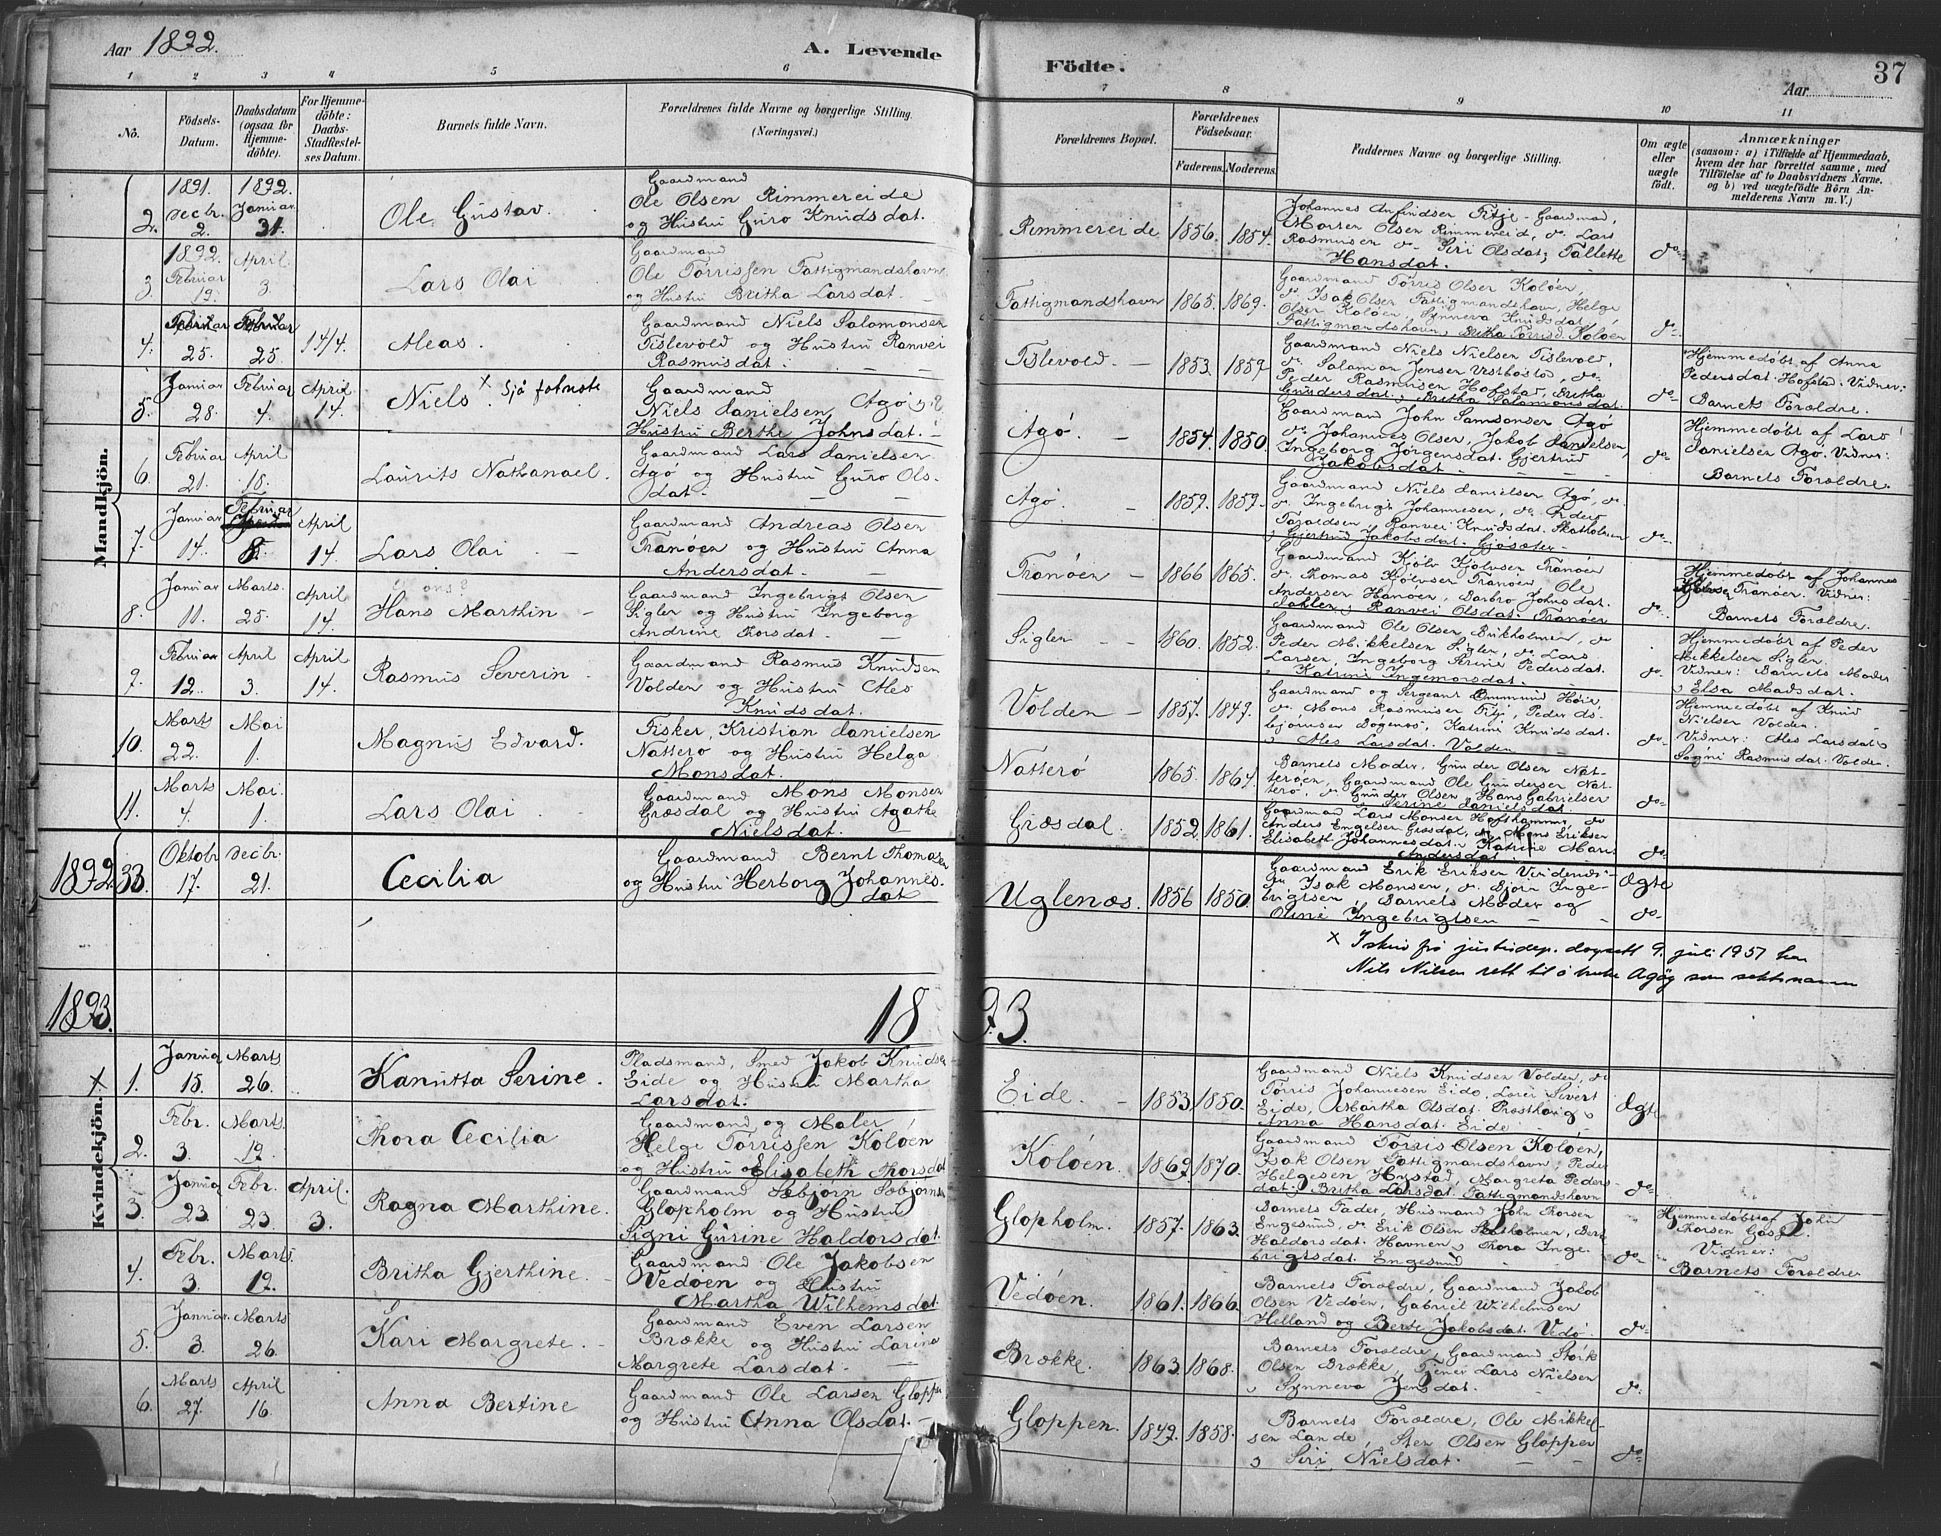 Aar 1892.
A. Levende Födte.
37
Aar
1 2 3 4 5 6 7 8 9 10 11
No.
Födsels-Datum.
Daabsdatum (ogsaa for Hjemmedöbte).
For Hjemmedöbte: Daabs-Stadfæstelses Datum.
Barnets fulde Navn.
Forældrenes fulde Navne og borgerlige Stilling. (Næringsvei.)
Forældrenes Bopæl.
Forældrenes Födselsaar.
Faderens. Moderens.
Faddernes Navne og borgerlige Stilling.
Om ægte eller uægte födt.
Anmærkninger
(saasom: a) i Tilfælde af Hjemmedaab, hvem der har forrettet samme, med Tilföielse af to Daabsvidners Navne, og b) ved uægtefödte Börn Anmelderens Navn m. V.)
Mandkjön.
2. 1891. Decbr. 2. 1892. Januar 31. Ole Gustav.
Gaardmand
Ole Olsen Rimmereide
og Hustru Guro Knudsdat.
Rimmereide 1856. 1854.
Johannes Anfindsen Fitje - Gaardmd,
Morten Olsen Rimmereid, do. Lars
Rasmusen do. Siri Olsdat, Tallette
Hansdat. do.
3. 1892. Februar 19. April 3. Lars Olai
Gaardmand
Ole Törrissen Fattigmandshavn
og Hustru Britha Larsdat.
Fattigmandshavn 1865. 1869.
Gaardmand Törris Olsen Kolöen,
do Isak Olsen Fattigmandshavn, Helge
Olsen Kolöen, Synneva Knudsdat,
Fattigmandshavn, Britha Törrisd. Kolöen do.
4. Februar 25. Februar 25. 14/4. Aleas.
Gaardmand Niels Salomonsen
Tislevold og Hustru Ranvei
Rasmusdat.
Tislevold. 1853. 1859
Gaardmand Niels Nielsen Tislevold,
do. Salamon Jensen Vestbostad, do.
Peder Rasmusen Hofstad, Britha
Gundersdat, Britha Salamonsdat. do.
Hjemmedöbt af Anna
Pedersdat. Hofstad. Vidner:
Barnets Forældre.
5. Januar 28. Februar 4. April 14. Niels. x Sjå fotnote
Gaardmand
Niels Danielsen Agö og
Hustru Berthe Johnsdat.
Agö. 1854. 1850.
Gaardmand John Samsonsen Agö
do. Johannes Olsen, Jakob Danielsen,
Ingeborg Jörgensdat. Gjertrud
Jakobsdat do.
Hjemmedöbt af Lars
Danielsen Agö. Vidner:
Barnets Forældre.
6. Februar 21. April 18. Laurits Nathanael.
Gaardmand Lars Danielsen
Agö og Hustru Guro Olsdat.
Agö. 1859. 1859.
Gaardmand Niels Danielsen Agö, do.
do. Ingebrigt Johannesen, do. Peder
Taraldsen, Ranvei Knudsdat. Skotholmen
, Gjertrud Jakobsdat. Gjösæter. do.
7. Januar 14. Februar 8. April 14. Lars Olai
Gaardmand Andreas Olsen
Tranöen og Hustru Anna
Andersdat.
Tranöen 1866 1865.
Gaardmand Kjölv Kjölvsen Tranöen
do. Thomas Kjölvsen Tranöen Ole
Andersen Hanöen, Barbro Johnsdat.
Sakler, Ranvei Olsdat. Tranöen do.
Hjemmedöbt af Johannes
Tranöen. Vidner:
Barnets Forældre.
8. Januar 11. Marts. 25. April 14. Hans Marthin
Gaardmand Ingebrigt Olsen
Sigler og Hustru Ingeborg
Andrine Thorsdat.
Sigler 1860. 1852.
Gaardmand Ole Olsen Birkholmen, do
Peder Mikkelsen Sigler, do. Lars
Larsen, Ingeborg Serine Pedersdat.
, Katrine Ingemorsdat. do.
Hjemmedöbt af Peder
Mikkelsen Sigler.
Vidner: Barnets Moder
, Elsa Madsdat.
9. Februar 12. April 3. April 14. Rasmus Severin
Gaardmand Rasmus Knudsen
Volden og Hustru Ales
Knudsdat.
Volden 1857. 1849.
Gaardmand og Sergeant Ommund Höie,
do. Mons Rasmusen Fitj, Peder
Katrine Knudsdat.
, Ales Larsdat. Volden do.
Hjemmedöbt af Knud
Nielsen Volden.
Vidner: Ales Larsdat,
Sögni Rasmusdat. Volden.
10. Marts 22. Mai 1. Magnus Edvard.
Fisker, Kristian Danielsen
Natterö og Hustru Helga
Monsdat.
Natterö 1865. 1864.
Barnets Moder, Gunder Olsen Natteröen, Gaardmand Ole Gundersen Natterö, do. Gunder Olsen, Hans Gabrielsen
, Serine Danielsdat. do.
11. Marts 4. Mai. 1. Lars Olai
Gaardmand Mons Monsen
Græsdal og Hustru Agathe
Nielsdat.
Græsdal. 1852. 1861.
Gaardmand Lars Monsen Hofshammer, do
Anders Engelsen Græsdal, do Mons Eriksen
Elisabeth Johannesdat., Katrine Marie
Andersdat do.
1892. 33. Oktobr 17. Decbr. 21. Cecilia
Gaardmand Bernt Thomasen
og Hustru Herborg Johannesdat
Uglenæs. 1856 1850.
Gaardmand Erik Eriksen Virdenæs
do. Isak Monsen, do. Björn Ingebrigtsen, Barnets Moder og
Oline Ingebrigtsen Ægte do.
x I skriv frå justisdep. dagsett 9. juli 1957 har
Nils Nilsen rett til å bruke Agöy som slektsnamn
1893.
1893.
Kvindekjön.
x 1. Januar 15. Marts 26. Kanutta Serine.
Pladsmand, Smed Jakob Knudsen
Eide og Hustru Martha
Larsdat.
Eide. 1853. 1850.
Gaardmand Niels Knudsen Volden, do
Törris Johannesen Eide, Lærer Sivert
Eide, Martha Olsdat. Prosthavig,
Anna Hansdat. Eide Ægte
2. Febr. 3. Marts. 19. Thora Cecilia
Gaardmand og Maler
Helge Törrissen Kolöen
og Hustru Elisabeth Thorsdat
Kolöen. 1862. 1870.
Gaardmand Törris Olsen Kolöen,
Isak Olsen Fattigmandshavn, Peder
Helgesen Hustad, Margreta Pedersdat, Britha Larsdat. Fattigmandshavn do.
3. Januar 23. Febr. 23. April. 3. Ragna Marthine.
Gaardmand Sæbjörn Sæbjörnsen
Glopholm og Hustru
Signi Gurine Haldorsdat.
Glopholm. 1857. 1863.
Barnets Fader, Husmand John Thorsen
Engesund, do. Erik Olsen Skotholmen, Berte
Haldorsdat. Havnen, Thora Ingebrigtsdat. Engesund do.
Hjemmedöbt af John
Thorsen
Vidner:
Barnets Forældre
4. Febr. 3. Marts. 12. Britha Gjerthine.
Gaardmand Ole Jakobsen
Vedöen og Hustru
Martha Wilhemsdat.
Vedöen. 1861. 1866.
Barnets Forældre, Gaardmand Jakob
Olsen Vedöen, Gabriel Wilhelmsen
Helland og Berte Jakobsdat. Vedö do.
5. Januar. 3. Marts 26. Kari Margrete.
Gaardmand Even Larsen
Brække og Hustru Larina
Margrete Larsdat.
Brække. 1863. 1868.
Barnets Forældre, Gaardmand Störk
Olsen Brække, Tjener Lars Nielsen
, Synneva Jensdat. do.
6. Marts 27. April 16. Anna Bertine
Gaardmand Ole Larsen Gloppen
og Hustru Anna Olsdat.
Gloppen. 1849. 1858.
Barnets Forældre, Ole Mikkelsen Lande, Sten Olsen Gloppen
, Siri Nielsdat. do.